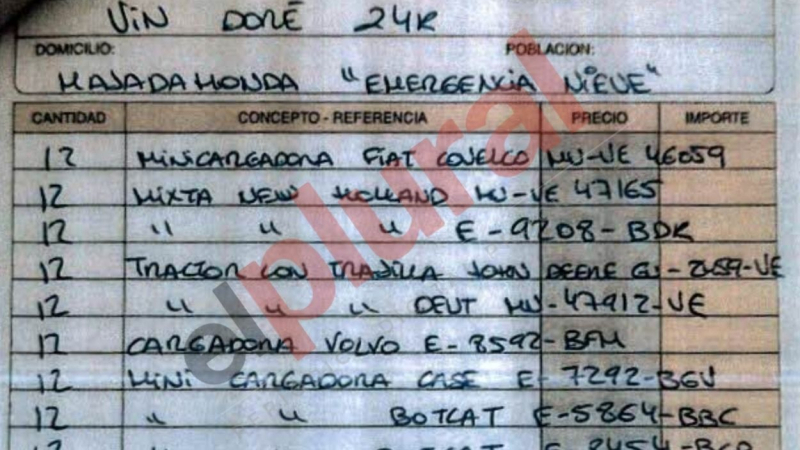 VIN DORÉ 24K
DOMICILIO: POBLACION:
MAJADAHONDA "EMERGENCIA NIEVE"
CANTIDAD CONCEPTO - REFERENCIA PRECIO IMPORTE
12 MINICARGADORA FIAT COVELCO MU-VE 46059
12 MIXTA NEW HOLLAND MU-VE 47165
12 " " " E-9208-BDR
12 TRACTOR CON TRAJILLA JOHN DEERE VE
12 " " " DEUT MU-47912-VE
12 CARGADORA VOLVO E-8592-BFM
12 MINI CARGADORA CASE E-7292-BGV
12 " " BOTCAT E-5864-BBC
12
elplural